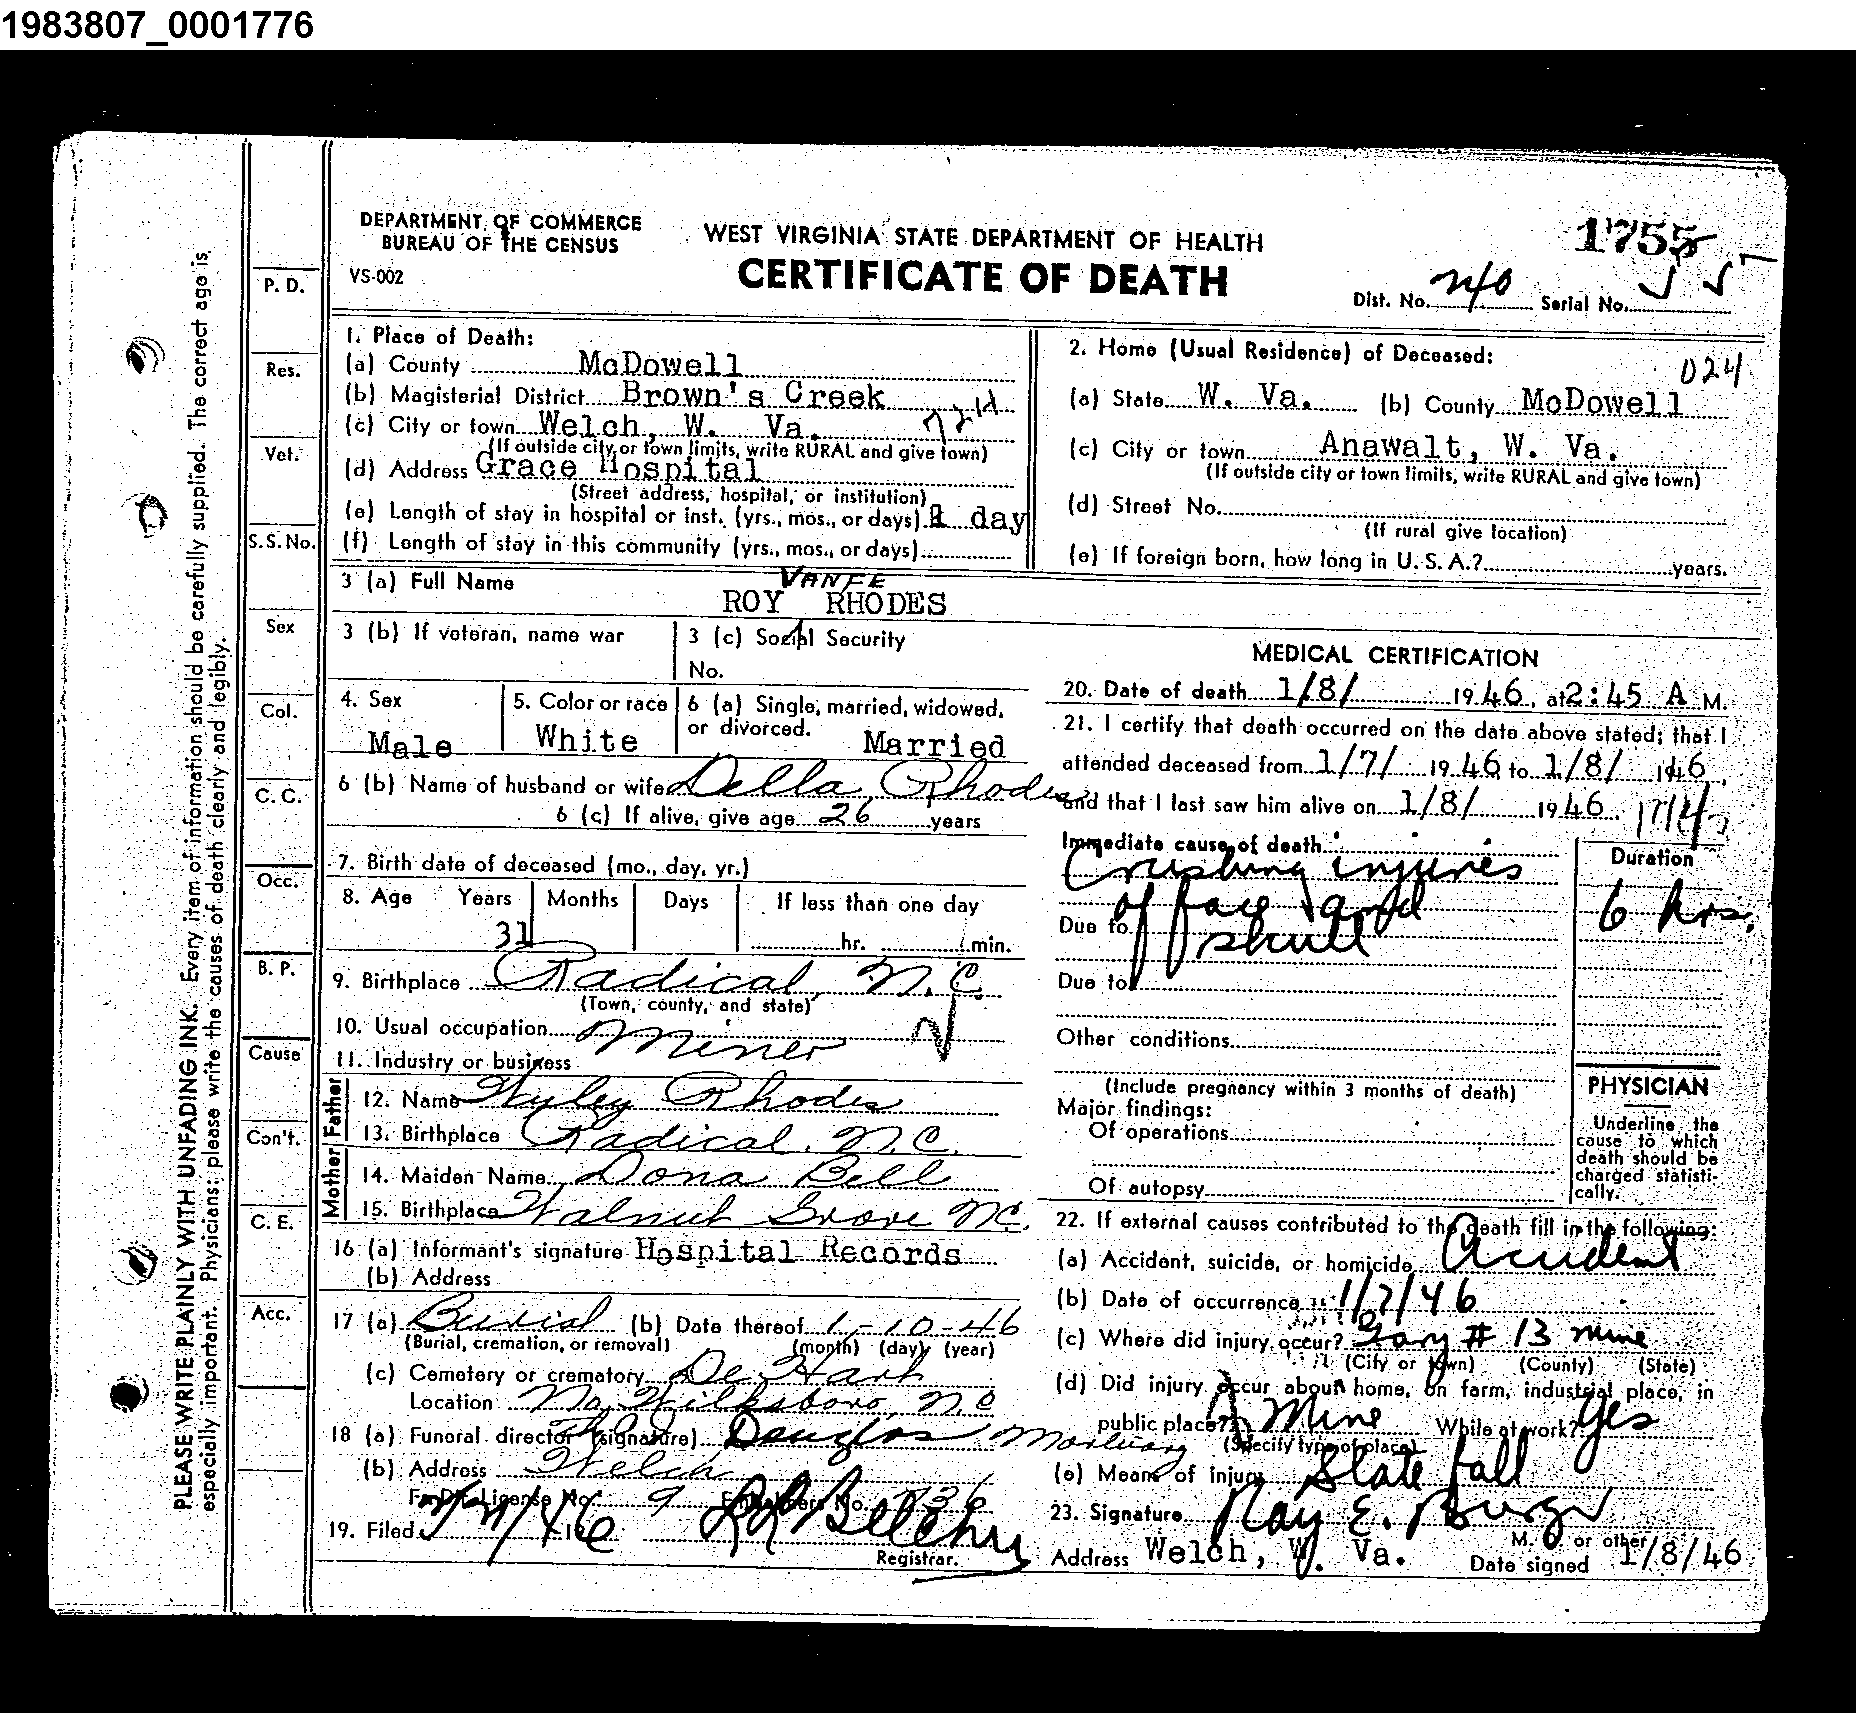 1983807_0001776
DEPARTMENT OF COMMERCE
BUREAU OF THE CENSUS
VS-002
WEST VIRGINIA STATE DEPARTMENT OF HEALTH
CERTIFICATE OF DEATH
1755
Dist. No. Serial No. 55
PLEASE WRITE PLAINLY WITH UNFADING INK. Every item of information should be carefully supplied. The correct age is
especially important. Physicians: please write the causes of death clearly and legibly.
P. D.
Res.
Vet.
S.S. No.
Sex
Col.
C. C.
Occ.
B. P.
Cause
Con't.
C. E.
Acc.
1. Place of Death:
(a) County McDowell
(b) Magisterial District Brown's Creek
(c) City or town Welch, W. Va.
(If outside city or town limits, write RURAL and give town)
(d) Address Grace Hospital
(Street address, hospital, or institution)
(e) Length of stay in hospital or inst. (yrs., mos., or days) 1 day
(f) Length of stay in this community (yrs., mos., or days)
2. Home (Usual Residence) of Deceased:
024
(a) State W. Va. (b) County McDowell
(c) City or town Anawalt, W. Va.
(If outside city or town limits, write RURAL and give town)
(d) Street No.
(If rural give location)
(e) If foreign born, how long in U. S. A.? years.
3 (a) Full Name
ROY RHODES
3 (b) If veteran, name war
3 (c) Social Security
No.
4. Sex
Male
5. Color or race
White
6 (a) Single, married, widowed,
or divorced. Married
6 (b) Name of husband or wife Della Rhodes
6 (c) If alive, give age 26 years
7. Birth date of deceased (mo., day, yr.)
8. Age Years Months Days If less than one day
31 hr. min.
9. Birthplace Radical, N.C.
(Town, county, and state)
10. Usual occupation Miner
11. Industry or business
Father
12. Name Wyley Rhodes
13. Birthplace Radical. N.C.
Mother
14. Maiden Name Dona Bell
15. Birthplace Walnut Grove N.C.
16 (a) Informant's signature Hospital Records
(b) Address
17 (a) Burial (b) Date thereof 1-10-46
(Burial, cremation, or removal) (month) (day) (year)
(c) Cemetery or crematory De Hart
Location No. Wilksboro, N.C
18 (a) Funeral director (signature) Douglas Mortuary
(b) Address Welch
F. Dir. License No. 9 Embalmers No.
19. Filed 19
Registrar.
MEDICAL CERTIFICATION
20. Date of death 1/8/ 1946, at 2:45 A M.
21. I certify that death occurred on the date above stated; that I
attended deceased from 1/7/ 1946 to 1/8/ 1946,
and that I last saw him alive on 1/8/ 1946.
Immediate cause of death
Crushing injuries
of face and
skull
Due to
Due to
Duration
6 hrs.
Other conditions
(Include pregnancy within 3 months of death)
Major findings:
Of operations
Of autopsy
PHYSICIAN
Underline the
cause to which
death should be
charged statisti-
cally.
22. If external causes contributed to the death fill in the following:
(a) Accident, suicide, or homicide Accident
(b) Date of occurrence 1/7/46
(c) Where did injury occur? Gary # 13 mine
(City or town) (County) (State)
(d) Did injury occur about home, on farm, industrial place, in
public place? Mine While at work? Yes
(Specify type of place)
(e) Means of injury Slate fall
23. Signature Ray E. Burger
M. D. or other
Address Welch, W. Va. Date signed 1/8/46